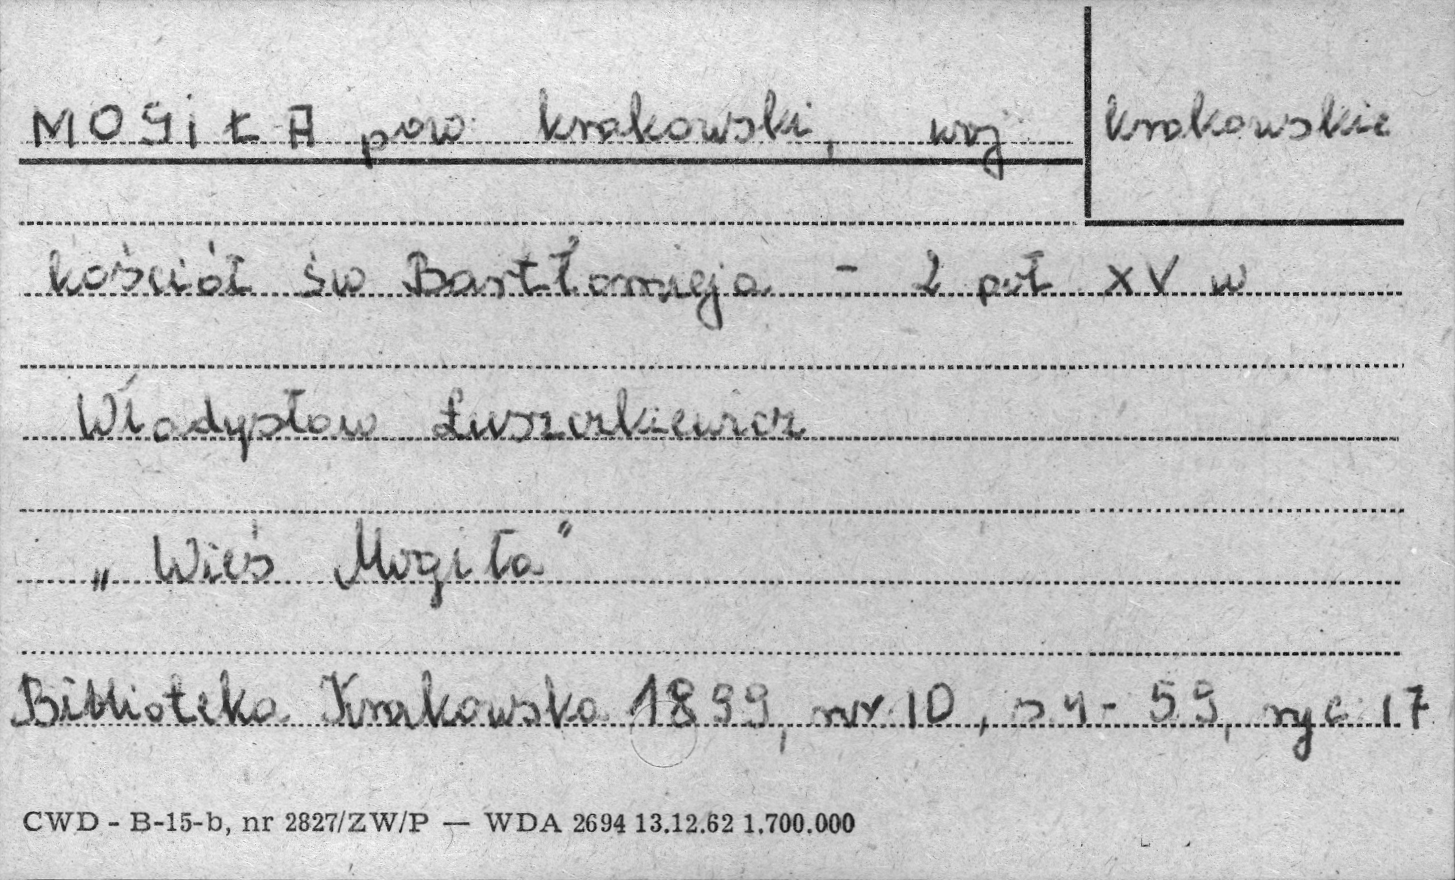 MOGIŁA pow krakowski, woj krakowskie
kościół św Bartłomieja - 2 poł XV w
Władysław Łuszczkiewicz
„Wieś Mogiła"
Biblioteka Krakowska 1899, nr 10, s 4 - 59, ryc 17
CWD - B-15-b, nr 2827/ZW/P — WDA 2694 13.12.62 1.700.000